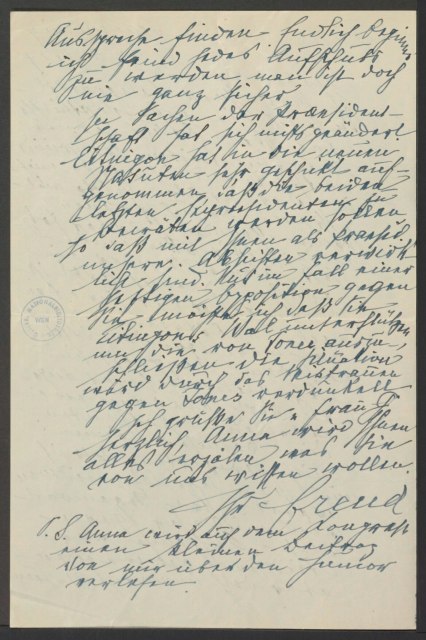 Aussprache finden. Endlich beginne
ich Feind jedes Aufschubs
zu werden, man ist doch
nie ganz sicher
In Sachen der Praesident-
schaft hat sich nichts geändert.
Eitingon hat in die neuen
Statuten sehr geschickt auf-
genommen, daß die beiden
letzten Expraesidenten zu
Beiräten werden sollen
so daß mit Ihnen als Praesid.
unsere Absichten verwirk-
licht sind. Nur im Fall einer
heftigen Opposition gegen
Sie möchte ich daß Sie
Eitingons Wahl unterstützen
um die von Jones auszu-
schließen. Die Situation
wird durch das Mistrauen
gegen Jones verdunkelt
Ich grüße Sie u Frau G.
herzlich. Anna wird Ihnen
alles erzälen was Sie
von uns wissen wollen.
Ihr Freud
P.S. Anna wird auf dem Kongreß
einen kleinen Beitrag
von mir über den Humor
verlesen